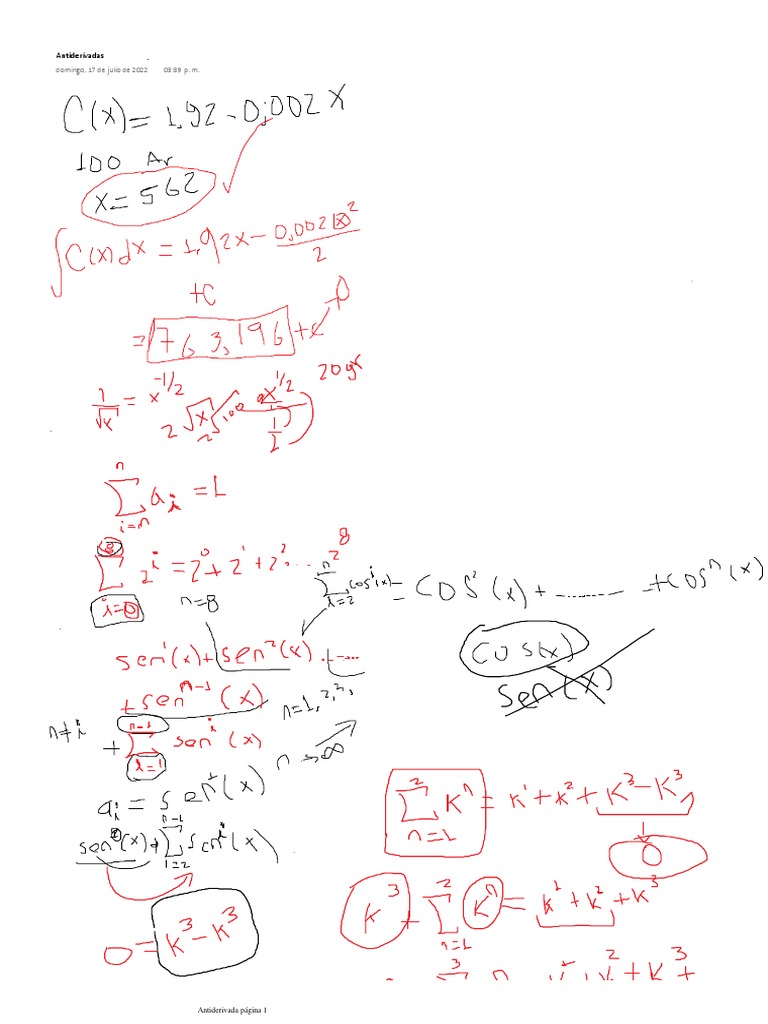 Antiderivadas
domingo, 17 de julio de 2022 03:39 p. m.
C(x) = 1,92 - 0,002X
100 Ar
x = 562
∫C(x)dx = 1,92x - 0,002(x)² / 2
+C
= 763,196 + c → 0
1/√x = x^(-1/2)
2√x
x^(1/2) / (1/2)
∑_{i=n}^{n} a_i = 1
∑_{i=0}^{8} 2^i = 2^0 + 2^1 + 2^2 ... 2^8
n=8
∑_{i=2}^{n} cos^i(x) = cos²(x) + ........ + cos^n(x)
sen^1(x) + sen²(x) + ....
cos(x)
sen(x)
+ sen^(n-1)(x)
n = 1, 2, 3,
n≠i
+ ∑_{i=1}^{n-1} sen^i(x)
n → ∞
a_i = sen^i(x)
∑_{n=1}^{2} K^n = K^1 + K^2 + K^3 - K^3
0
∑_{i=2}^{n-1} sen^i(x)
K^3 + ∑_{n=1}^{2} K^n = K^1 + K^2 + K^3
0 = K^3 - K^3
3
K^2 + K^3 +
Antiderivada página 1